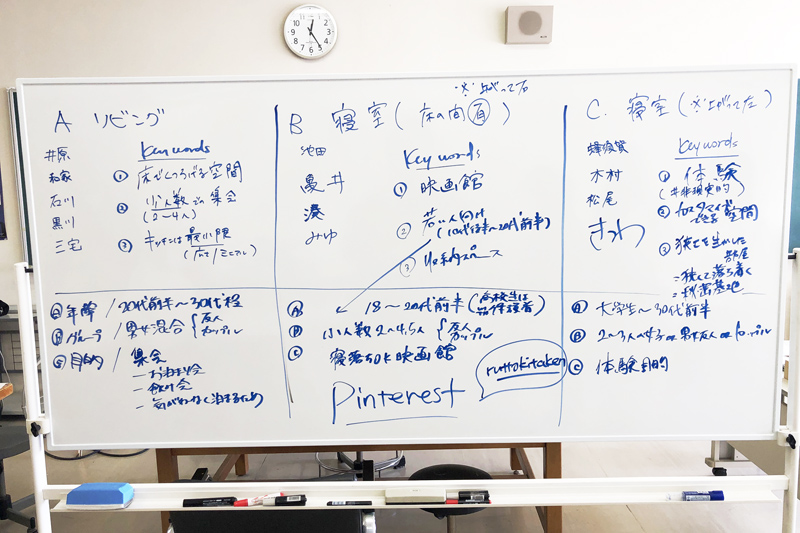 A リビング
井原
和家
石川
黒川
三宅
Keywords
① 床でくつろげる空間
② 少人数での集会
(2〜4人)
③ キッチンは最小限
※上がって右
B 寝室(床の間有)
池田
亀井
湊
みゆ
Keywords
① 映画館
② 若い人向け
(10代後半〜20代前半)
③
C. 寝室(※上がって左)
木村
松尾
きつわ
Keywords
① 体験
(非現実的)
② カスタマイズできる空間
③ 狭さを生かした部屋
=狭くて落ち着く
=秘密基地
Ⓐ年降/20代前半〜30代程
Ⓑグループ/男女混合{友人 カップル
Ⓒ目的/集会
—お泊り会
—飲み会
—気がねなく泊まるため
Ⓐ 18〜20代前半(高校生は 保護者)
Ⓑ 少人数2〜4,5人{友人 カップル
Ⓒ 寝落ちOK映画館
Pinterest
ruttokitaken
Ⓐ 大学生〜30代前半
Ⓑ 2〜3人 男女友人 or カップル
Ⓒ 体験目的